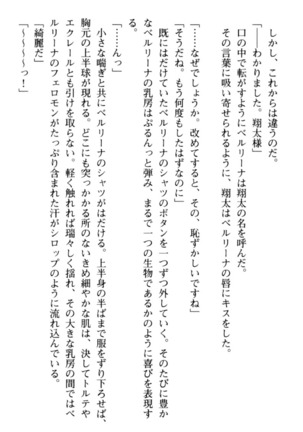 しかし、これからは違うのだ。
「――わかりました。翔太様」
口の中で転がすようにベルリーナは翔太の名を呼んだ。
その言葉に吸い寄せられるように、翔太はベルリーナの唇にキスをした。
「……なぜでしょうか。改めてすると、その、恥ずかしいですね」
「そうだね。もう何度もしたはずなのに」
既にはだけていたベルリーナのシャツのボタンを一つずつ外していく。そのたびに豊か
なベルリーナの乳房はぷるんっと弾み、まるで一つの生物であるかのように喜びを表現す
る。
「……んっ」
小さな喘ぎと共にベルリーナのシャツがはだける。上半身の半ばまで服をずり下ろせば、
胸元の上半球が現れる。どこにも突っかかる所のないきめ細やかな肌は、決してトルテや
エクレールとも引けを取らない。軽く触れれば瑞々しく揺れ、その大きな乳房の間ではベ
ルリーナのフェロモンがたっぷり含まれた汗がシロップのように流れ込んでいる。
「綺麗だ」
「～～～～っ！」